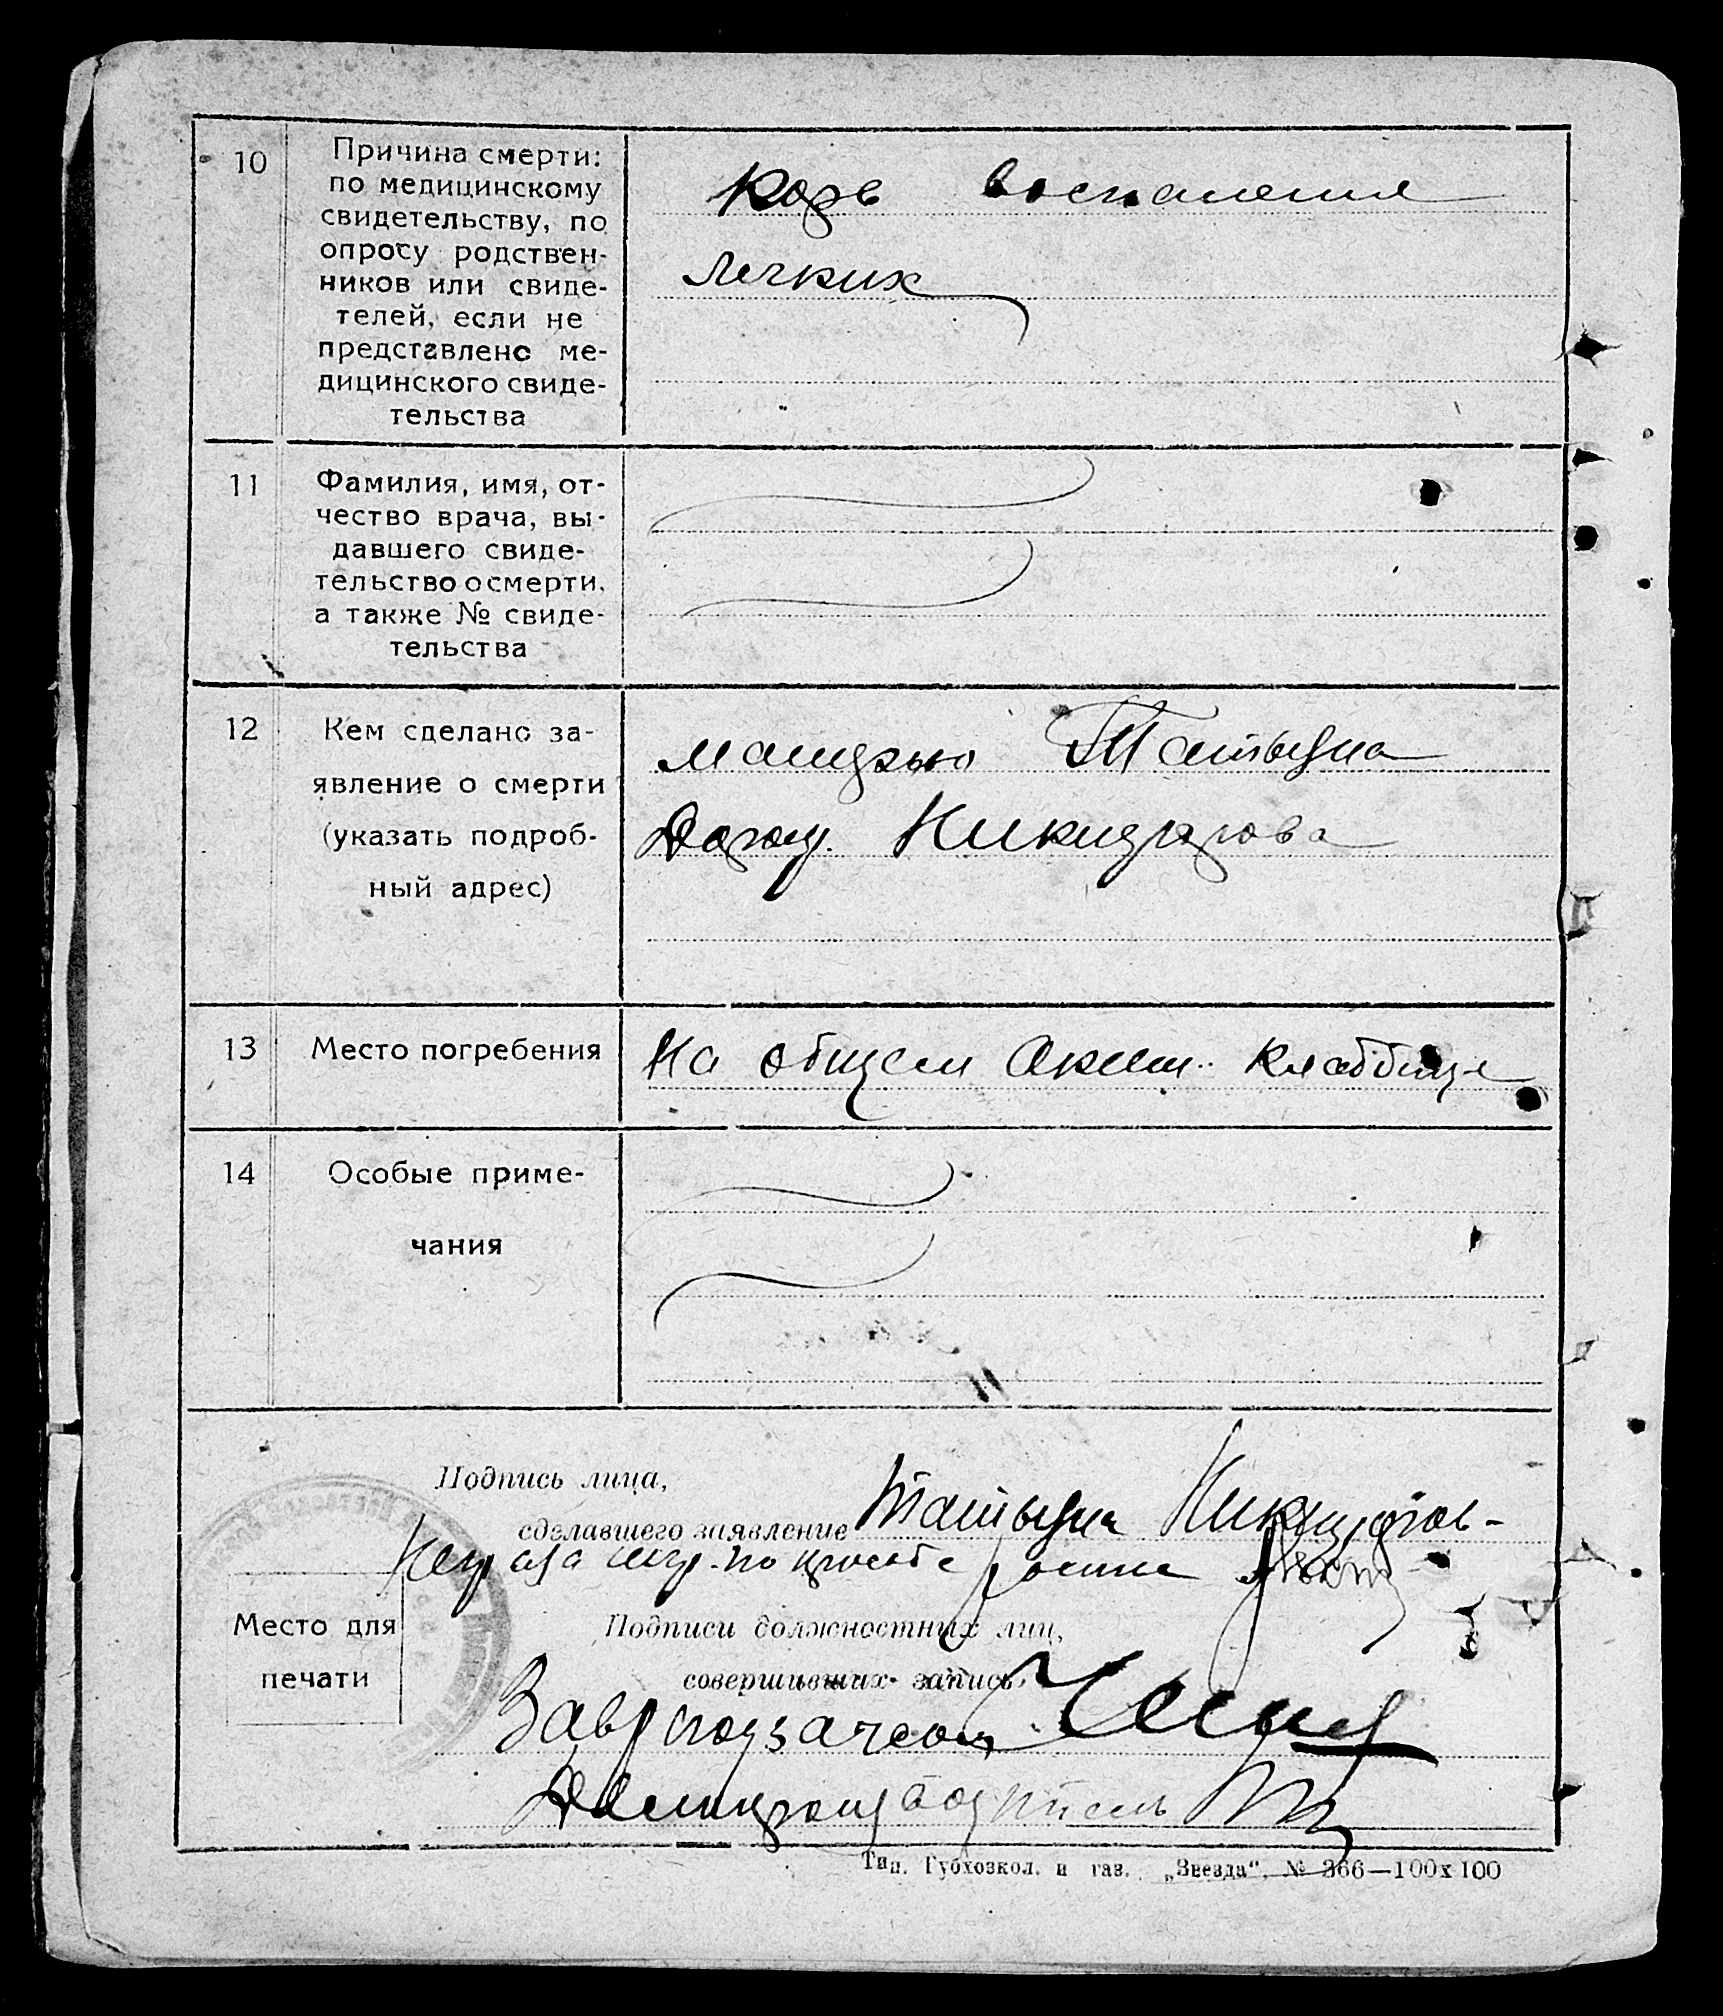 10
Причина смерти:
по медицинскому
свидетельству, по
опросу родствен-
ников или свиде-
телей, если не
представлено ме-
дицинского свиде-
тельства
Корь воспаления
легких
11
Фамилия, имя, от-
чество врача, вы-
давшего свиде-
тельство о смерти,
а также № свиде-
тельства
12
Кем сделано за-
явление о смерти
(указать подроб-
ный адрес)
матерью Татьяна
Никифорова
13
Место погребения
На общем кладбище
14
Особые приме-
чания
Подпись лица,
сделавшего заявление Татьяна Никифоров-
Место для
печати
Подписи должностных лиц,
совершивших запись
Завр подзагсом
Делопроизводитель
Тип. Губхозкол. и газ. „Звезда“. № 366—100х100